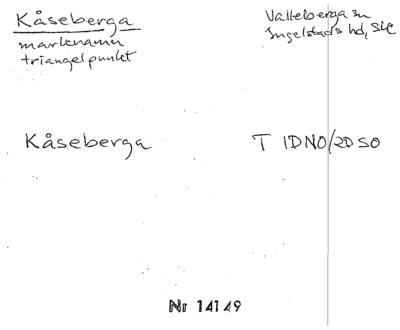 Kåseberga
marknamn
triangelpunkt
Valleberga sn
Ingelstads hd, Skå
Kåseberga
T 1D NO/2D SO
Nr 14149